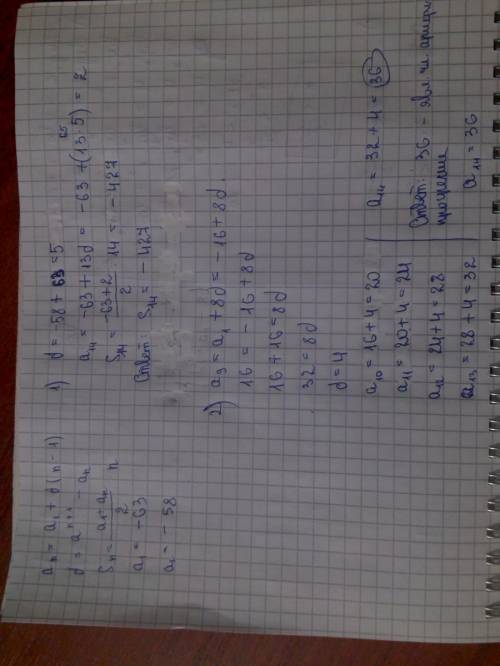 aₙ = a₁ + d(n-1)
d = aⁿ⁺¹ - aₙ
Sₙ = a₁+aₙ/2 n
a₁ = -63
a₁ = -58
1) d = -58 + 63 = 5
a₁₄ = -63 + 13d = -63 + (13·5) = 2
65
S₁₄ = -63+2/2 14 = -427
Ответ: S₁₄ = -427
2) a₉ = a₁ + 8d = -16 + 8d.
16 = -16 + 8d
16 + 16 = 8d
32 = 8d
d = 4
a₁₀ = 16 + 4 = 20
a₁₁ = 20 + 4 = 24
a₁₂ = 24 + 4 = 28
a₁₃ = 28 + 4 = 32
a₁₄ = 32 + 4 = 36
Ответ: 36 - явл чл. арифм
прогрессии
a₁₄ = 36